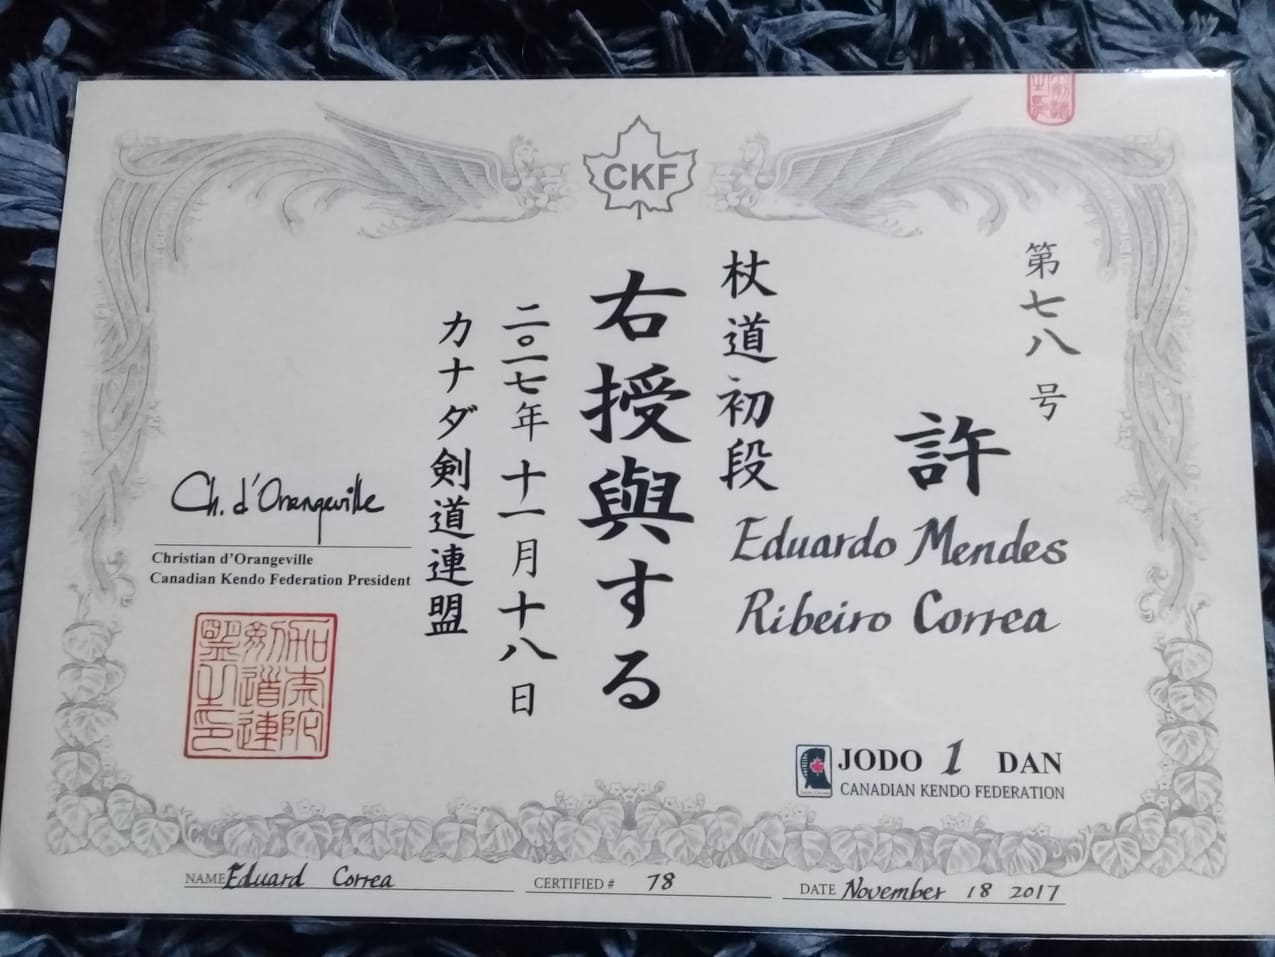 CKF
第七八号
許
Eduardo Mendes
Ribeiro Correa
杖道初段
右授與する
二〇一七年十一月十八日
カナダ剣道連盟
Ch. d'Orangeville
Christian d'Orangeville
Canadian Kendo Federation President
加奈陀
劔道連
盟之印
JODO 1 DAN
CANADIAN KENDO FEDERATION
NAME Eduard Correa
CERTIFIED # 78
DATE November 18 2017